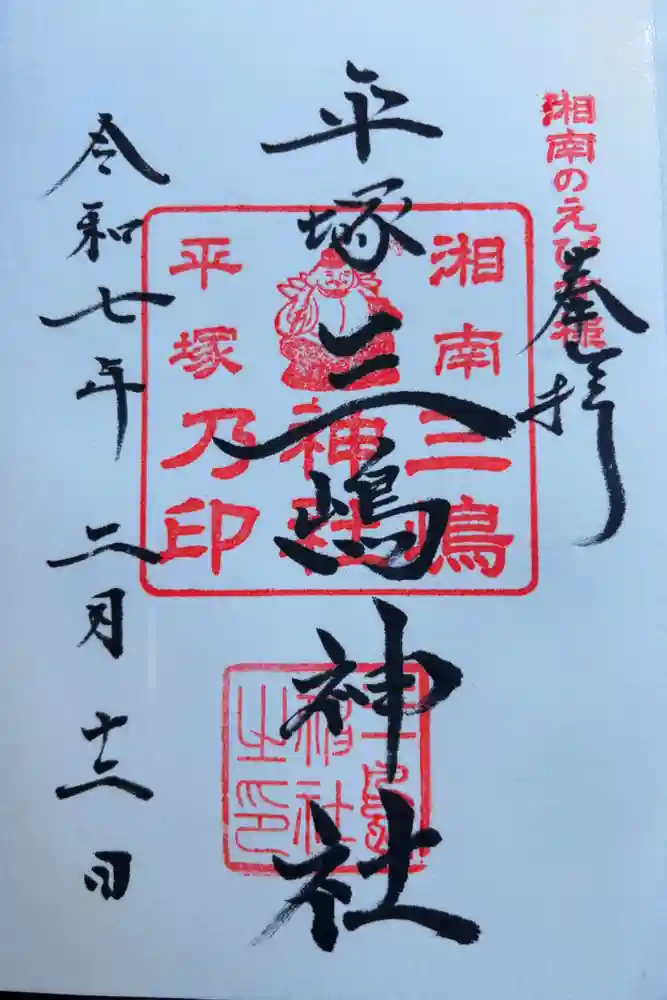 湘南のえびす様
奉拝
平塚三嶋神社
湘南三嶋
神社
平塚乃印
神社
之印
令和七年二月十三日